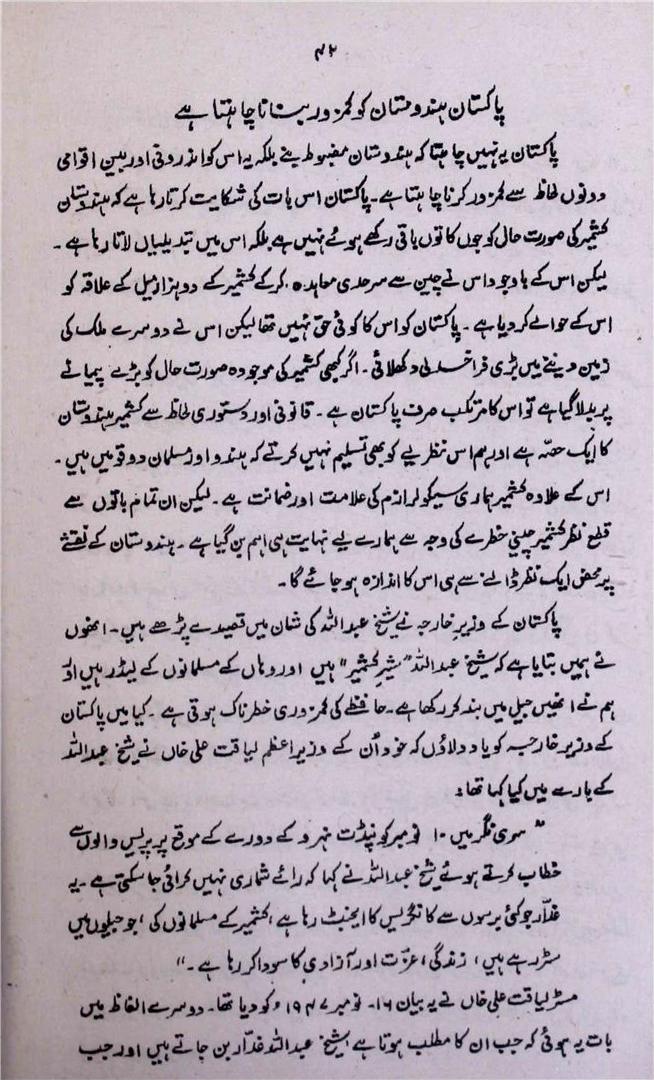 ۴۲
پاکستان ہندوستان کو کمزور بنانا چاہتا ہے
پاکستان یہ نہیں چاہتا کہ ہندوستان مضبوط بنے بلکہ یہ اس کو اندرونی اور بین اقوامی
دونوں لحاظ سے کمزور کرنا چاہتا ہے۔ پاکستان اس بات کی شکایت کرتا رہا ہے کہ ہندوستان
کشمیر کی صورت حال کو جوں کا توں باقی رکھے ہوئے نہیں ہے بلکہ اس میں تبدیلیاں لاتا رہا ہے۔
لیکن اس کے باوجود اس نے چین سے سرحدی معاہدہ کر کے کشمیر کے دو ہزار میل کے علاقہ کو
اس کے حوالے کر دیا ہے۔ پاکستان کو اس کا کوئی حق نہیں تھا لیکن اس نے دوسرے ملک کی
زمین دینے میں بڑی فراخدلی دکھلائی۔ اگر کبھی کشمیر کی موجودہ صورت حال کو بڑے پیمانے
پر بدلا گیا ہے تو اس کا مرتکب صرف پاکستان ہے۔ قانونی اور دستوری لحاظ سے کشمیر ہندوستان
کا ایک حصہ ہے اور ہم اس نظریے کو بھی تسلیم نہیں کرتے کہ ہندو اور مسلمان دو قومیں ہیں۔
اس کے علاوہ کشمیر ہماری سیکولرازم کی علامت اور ضمانت ہے۔ لیکن ان تمام باتوں سے
قطع نظر کشمیر چینی خطرے کی وجہ سے ہمارے لیے نہایت ہی اہم بن گیا ہے۔ ہندوستان کے نقشے
پر محض ایک نظر ڈالنے سے ہی اس کا اندازہ ہو جائے گا۔
پاکستان کے وزیر خارجہ نے شیخ عبداللہ کی شان میں قصیدے پڑھے ہیں۔ انھوں
نے ہمیں بتایا ہے کہ شیخ عبداللہ "شیر کشمیر" ہیں اور وہاں کے مسلمانوں کے لیڈر ہیں اور
ہم نے انھیں جیل میں بند کر رکھا ہے۔ حافظے کی کمزوری خطرناک ہوتی ہے۔ کیا میں پاکستان
کے وزیر خارجہ کو یاد دلاؤں کہ خود اُن کے وزیر اعظم لیاقت علی خاں نے شیخ عبداللہ
کے بارے میں کیا کہا تھا:
"سری نگر میں ۱۰ نومبر کو پنڈت نہرو کے دورے کے موقع پر پریس والوں سے
خطاب کرتے ہوئے شیخ عبداللہ نے کہا کہ رائے شماری نہیں کرائی جا سکتی ہے۔ یہ
غدّار جو کئی برسوں سے کانگریس کا ایجنٹ رہا ہے، کشمیر کے مسلمانوں کی، جو جیلوں میں
سڑ رہے ہیں، زندگی، عزّت اور آزادی کا سودا کر رہا ہے۔"
مسٹر لیاقت علی خاں نے یہ بیان ۱۶۔ نومبر ۱۹۴۷ء کو دیا تھا۔ دوسرے الفاظ میں
بات یہ ہوئی کہ جب ان کا مطلب ہوتا ہے شیخ عبداللہ غدّار بن جاتے ہیں اور جب